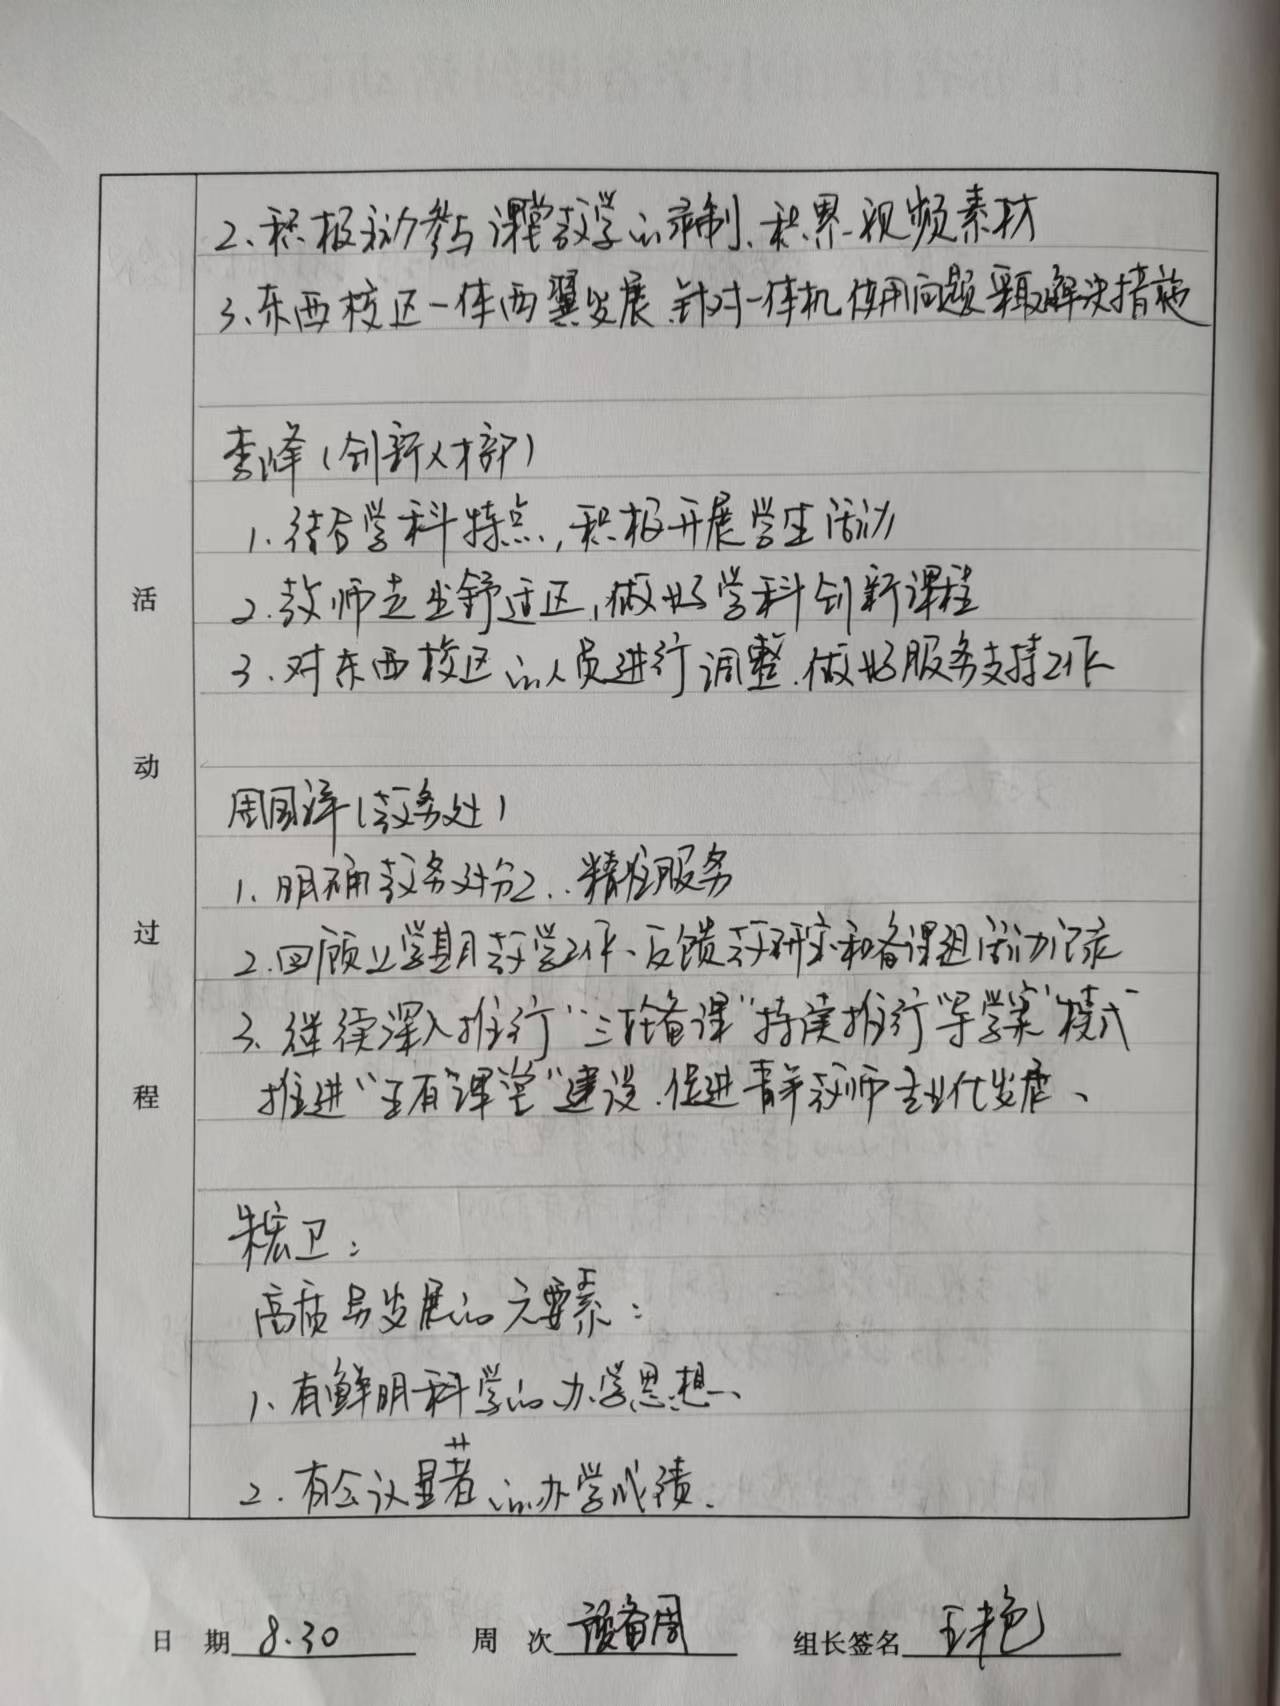 2、积极主动参与课堂教学的录制、积累视频素材
3、东西校区一体两翼发展、针对一体机使用问题采取解决措施
李峰（创新人才部）
1、结合学科特点，积极开展学生活动
2、教师走出舒适区，做好学科创新课程
3、对东西校区的人员进行调整、做好服务支持工作
周国泽（教务处）
1、明确教务处分工、精准服务
2、回顾上学期教学工作、反馈教研室和备课组活动记录
3、继续深入推行“三轮备课”持续推行“导学案”模式
推进“三有课堂”建设、促进青年教师专业化发展、
朱宏卫：
高质量发展的六要素：
1、有鲜明科学的办学思想、
2、有公认显著的办学成绩、
活动过程
日期 8.30 周次 预备周 组长签名 王艳